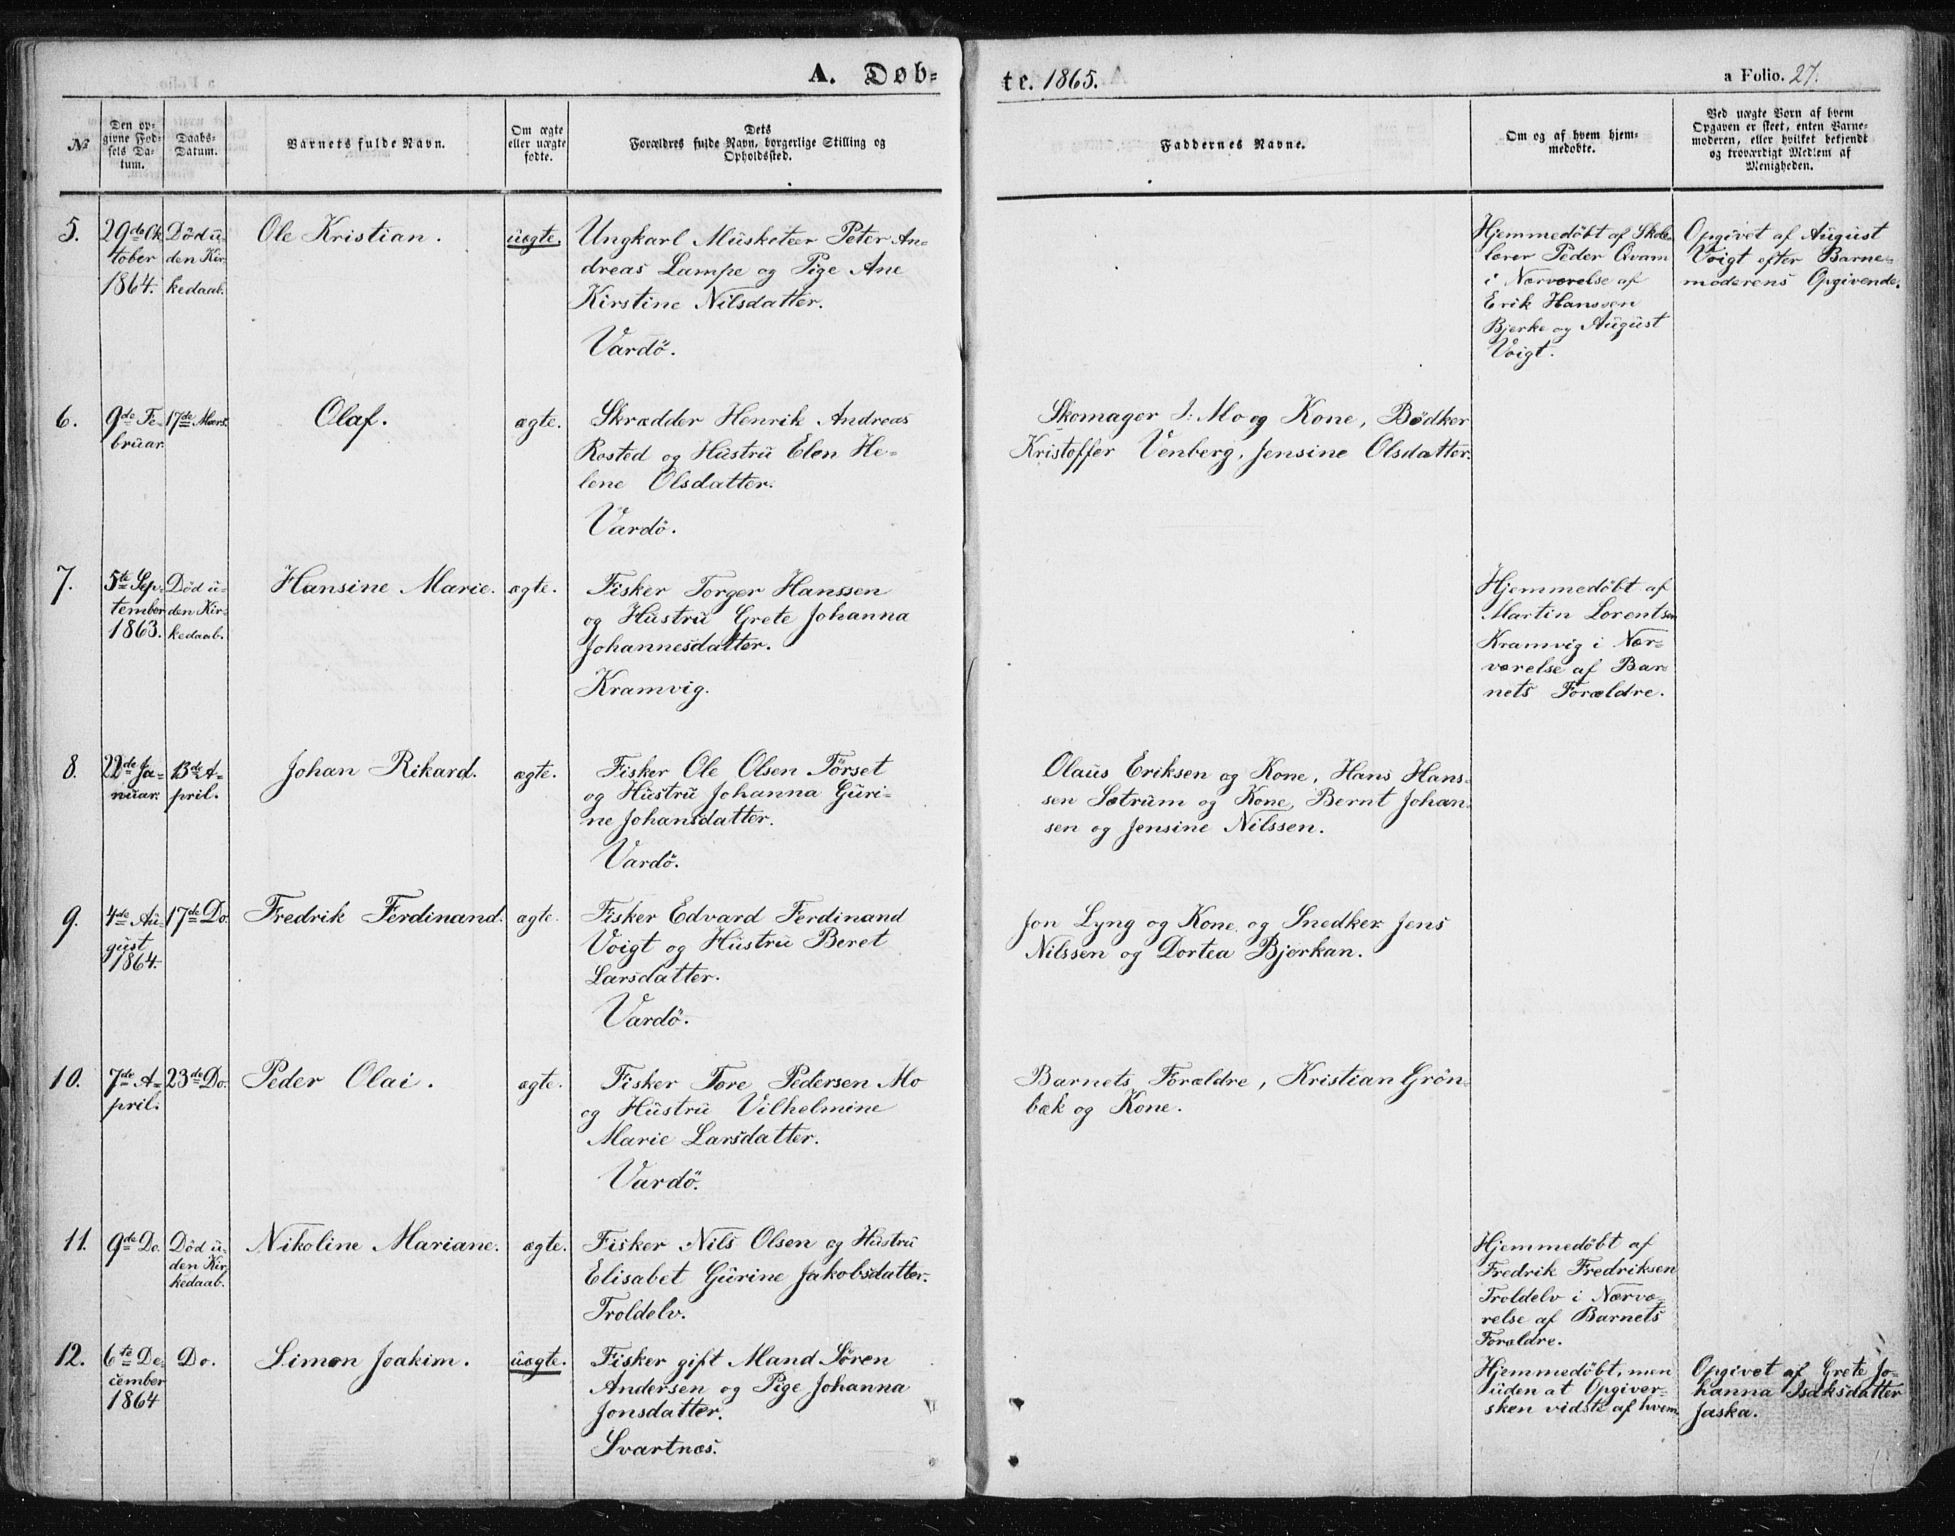 A. Døb-
te. 1865.
a Folio. 27.
№
Den op-
givne Fød-
sels Da-
tum.
Daabs-
Datum.
Barnets fulde Navn.
Om ægte
eller uægte
fødte.
Dets
Forældres fulde Navn, borgerlige Stilling og
Opholdssted.
Faddernes Navne.
Om og af hvem hjem-
medøbte.
Ved uægte Børn af hvem
Opgaven er skeet, enten Barne-
moderen, eller hvilket bekjendt
og troværdigt Medlem af
Menigheden.
5.
29de Ok
tober
1864.
Död u-
den Kir-
kedaab.
Ole Kristian.
uægte.
Ungkarl Musketeer Peter An-
dreas Lampe og Pige Ane
Kirstine Nilsdatter.
Vardö.
Hjemmedöbt af Skole-
lærer Peder Qvam
i Nærværelse af
Erik Hanssen
Bjerke og August
Voigt.
Opgivet af August
Voigt efter Barne-
moderens Opgivende.
6.
9de Fe-
bruar.
17de Marts.
Olaf.
ægte.
Skrædder Henrik Andreas
Rosted og Hustru Elen He-
lene Olsdatter.
Vardö.
Skomager J: Mo og Kone, Bödker
Kristoffer Venberg, Jensine Olsdatter.
7.
5te Sep-
tember
1863.
Död u-
den Kir-
kedaab.
Hansine Marie.
ægte.
Fisker Torger Hanssen
og Hustru Grete Johanna
Johannesdatter.
Kramvig.
Hjemmedöbt af
Martin Lorentsen
Kramvig i Nær-
værelse af Bar-
nets Forældre.
8.
22de Ja-
nuar.
13de A-
pril.
Johan Rikard.
ægte.
Fisker Ole Olsen Törset
og Hustru Johanna Guri-
ne Johansdatter.
Vardö.
Olaus Eriksen og Kone, Hans Hans-
sen Sætrum og Kone, Bernt Johan-
sen og Jensine Nilssen.
9.
4de Au-
gust
1864.
17de Do.
Fredrik Ferdinand.
ægte.
Fisker Edvard Ferdinand
Voigt og Hustru Beret
Larsdatter.
Vardö.
Jon Lyng og Kone, og Snedker Jens
Nilssen og Dortea Bjerkan.
10.
7de A-
pril.
23de Do.
Peder Olai.
ægte.
Fisker Tore Pedersen Mo
og Hustru Vilhelmine
Marie Larsdatter.
Vardö.
Barnets Forældre, Kristian Grön-
bæk og Kone.
11.
9de Do.
Död u-
den Kir-
kedaab.
Nikoline Mariane.
ægte.
Fisker Nils Olsen og Hustru
Elisabet Gurine Jakobsdatter.
Troldelv.
Hjemmedöbt af
Fredrik Fredriksen
Troldelv i Nærvæ-
relse af Barnets
Forældre.
12.
6te De-
cember
1864
Do.
Simon Joakim.
uægte.
Fisker gift Mand Sören
Andersen og Pige Johanna
Jonsdatter.
Svartnæs.
Hjemmedöbt, men
uden at Opgiver-
sken vidste af hvem.
Opgivet af Grete Jo-
hanna Isaksdatter
Jaska.